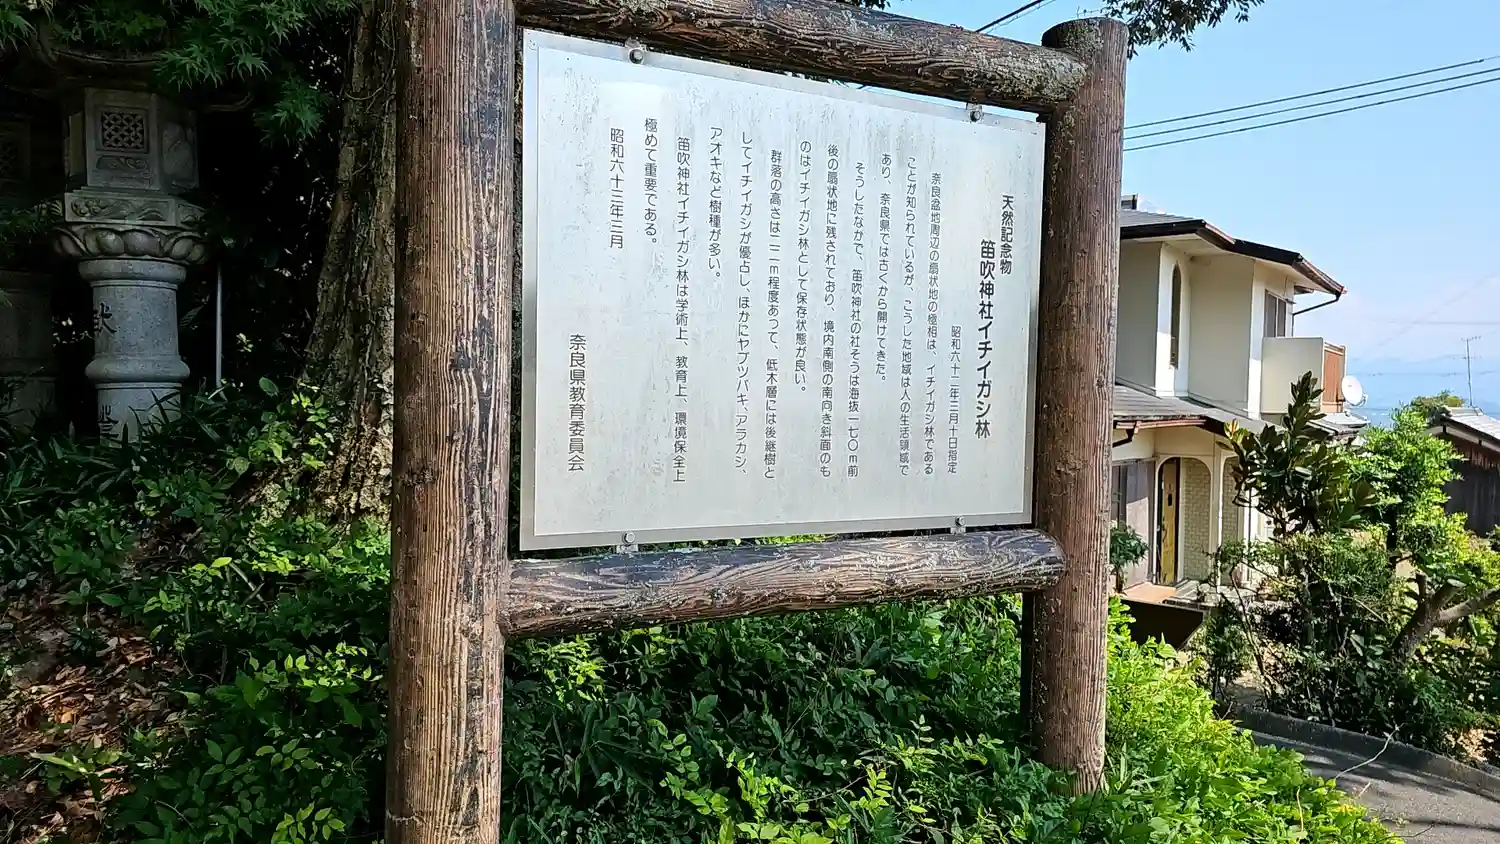 天然記念物
笛吹神社イチイガシ林
昭和六十二年三月十日指定
奈良盆地周辺の扇状地の極相は、イチイガシ林である
ことが知られているが、こうした地域は人の生活領域で
あり、奈良県では古くから開けてきた。
そうしたなかで、笛吹神社の社そうは海抜一七〇m前
後の扇状地に残されており、境内南側の南向き斜面のも
のはイチイガシ林として保存状態が良い。
群落の高さは二二m程度あって、低木層には後継樹と
してイチイガシが優占し、ほかにヤブツバキ、アラカシ、
アオキなど樹種が多い。
笛吹神社イチイガシ林は学術上、教育上、環境保全上
極めて重要である。
昭和六十三年三月
奈良県教育委員会